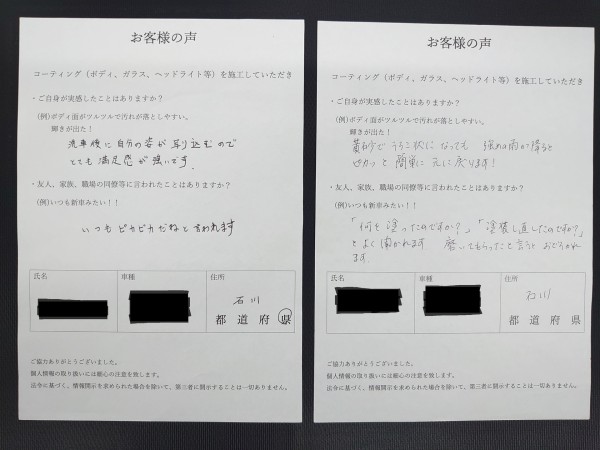 お客様の声
コーティング（ボディ、ガラス、ヘッドライト等）を施工していただき
・ご自身が実感したことはありますか？
(例)ボディ面がツルツルで汚れが落としやすい。
輝きが出た！
洗車後に自分の姿が写り込むので
とても満足感が強いです。
・友人、家族、職場の同僚等に言われたことはありますか？
(例)いつも新車みたい！！
いつもピカピカだねと言われます
氏名
車種
住所
石川
都 道 府 県
ご協力ありがとうございました。
個人情報の取り扱いには細心の注意を致します。
法令に基づく、情報開示を求められた場合を除いて、第三者に開示することは一切ありません。
お客様の声
コーティング（ボディ、ガラス、ヘッドライト等）を施工していただき
・ご自身が実感したことはありますか？
(例)ボディ面がツルツルで汚れが落としやすい。
輝きが出た！
黄砂でうろこ状になっても 強めの雨が降ると
簡単に元に戻ります！
・友人、家族、職場の同僚等に言われたことはありますか？
(例)いつも新車みたい！！
「何を塗ったのですか？」「塗装し直したのですか？」
とよく聞かれます 磨いてもらったと言うとおどろかれ
ます.
氏名
車種
住所
石川
都 道 府 県
ご協力ありがとうございました。
個人情報の取り扱いには細心の注意を致します。
法令に基づく、情報開示を求められた場合を除いて、第三者に開示することは一切ありません。